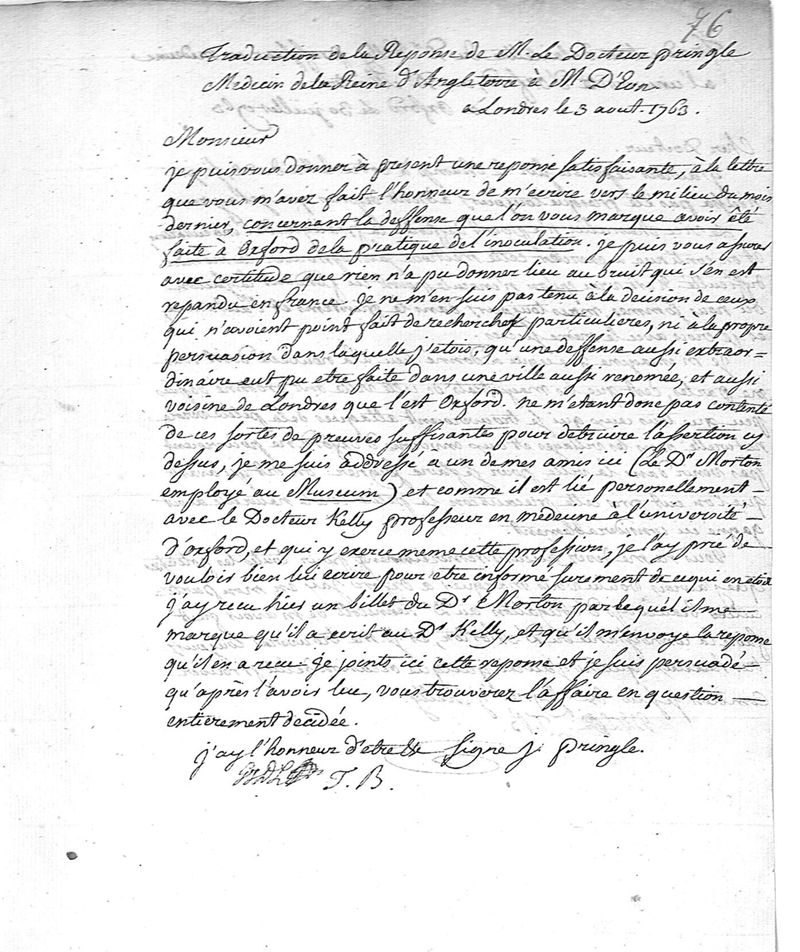 76
Traduction de la Reponse de M. Le Docteur pringle
Medecin de la Reine d'Angleterre à M. D'Eon
à Londres le 3 aout 1763.
Monsieur
je puis vous donner à present une reponse satisfaisante, à la lettre
que vous m'avez fait l'honneur de m'ecrire vers le milieu du mois
dernier, concernant la deffense que l'on vous marque avoir êté
faite à Oxford de la pratique de l'inoculation. je puis vous assurer
avec certitude que rien n'a pu donner lieu au bruit qui s'en est
repandu en france. je ne m'en suis pas tenu à la decision de ceux
qui n'avoient point fait de recherches particulieres, ni à la propre
persuasion dans laquelle j'etois, qu'une deffense aussi extraor=
dinaire eut pu etre faite dans une ville aussi renomée, et aussi
voisine de Londres que l'est Oxford. ne m'etant donc pas contenté
de ces sortes de preuves suffisantes pour detruire l'assertion cy
dessus, je me suis addressé a un de mes amis ici (Le Dr Morton
employé au Museum) et comme il est lié personellement
avec le Docteur Kelly professeur en medecine à l'université
d'oxford, et qui y exerce meme cette profession, je l'ay prié de
vouloir bien lui ecrire pour etre informé surement de ce qui en etoit
j'ay recu hier un billet du Dr Morton par lequel il me
marque qu'il a ecrit au Dr Kelly, et qu'il m'envoye la reponse
qu'il en a recu. je joints ici cette reponse et je suis persuadé
qu'après l'avoir lue, vous trouverez l'affaire en question
entierement decidée.
j'ay l'honneur d'etre &c signe j. pringle.
T. B.